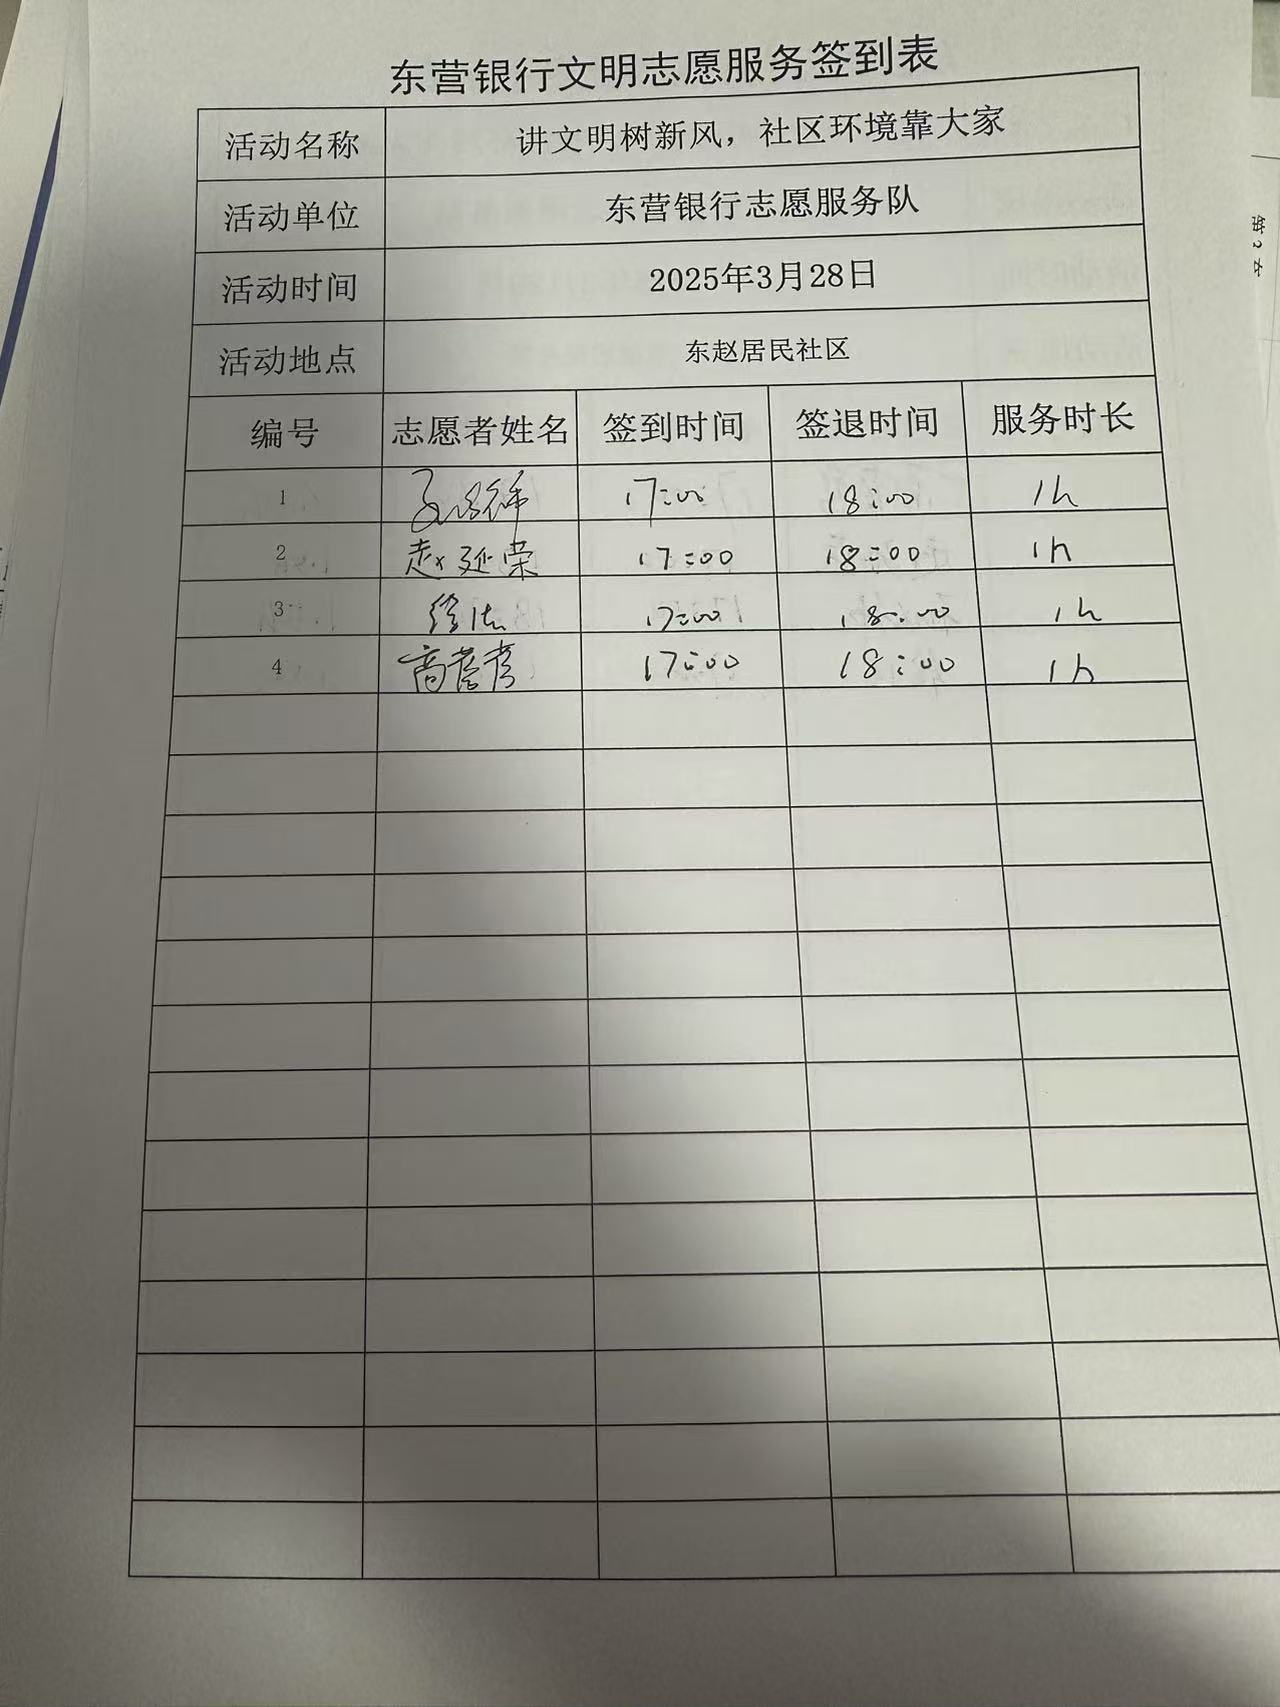 东营银行文明志愿服务签到表
活动名称 讲文明树新风，社区环境靠大家
活动单位 东营银行志愿服务队
活动时间 2025年3月28日
活动地点 东赵居民社区
编号 志愿者姓名 签到时间 签退时间 服务时长
1 17:00 18:00 1h
2 赵延荣 17:00 18:00 1h
3 17:00 18:00 1h
4 17:00 18:00 1h